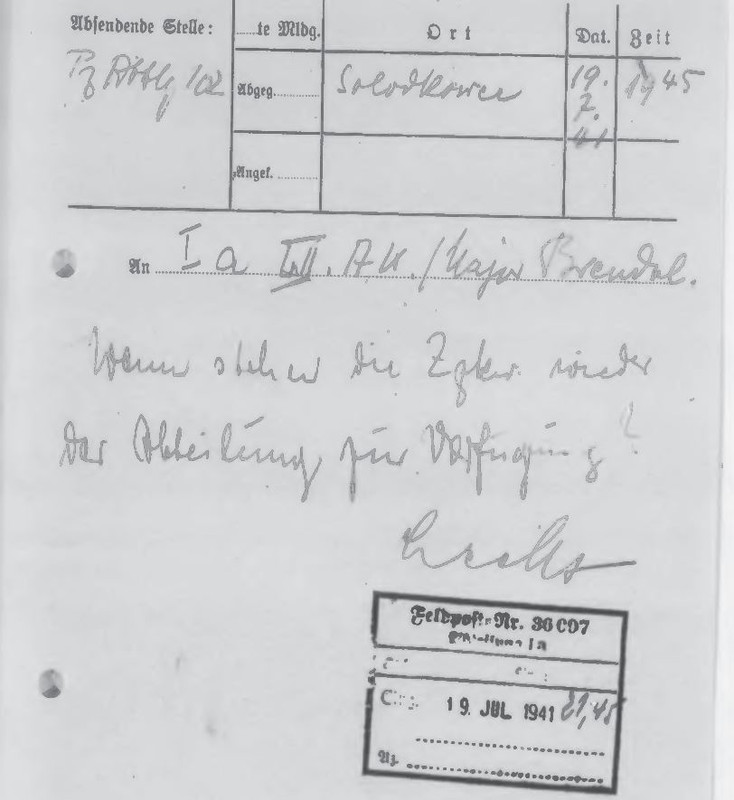 Absendende Stelle: ......te Mldg. Ort Dat. Zeit
Pz Abtlg 102 Abgeg......... Solodkowce 19. 1945
7.
41
Angek. .........
An I a LII. A.K. / Major Brendel.
Wann stehen die Zgkw. wieder
der Abteilung zur Verfügung?
Feldpost-Nr. 36007
Abteilung Ia
Eing. 19. JUL 1941 21,45
Az.